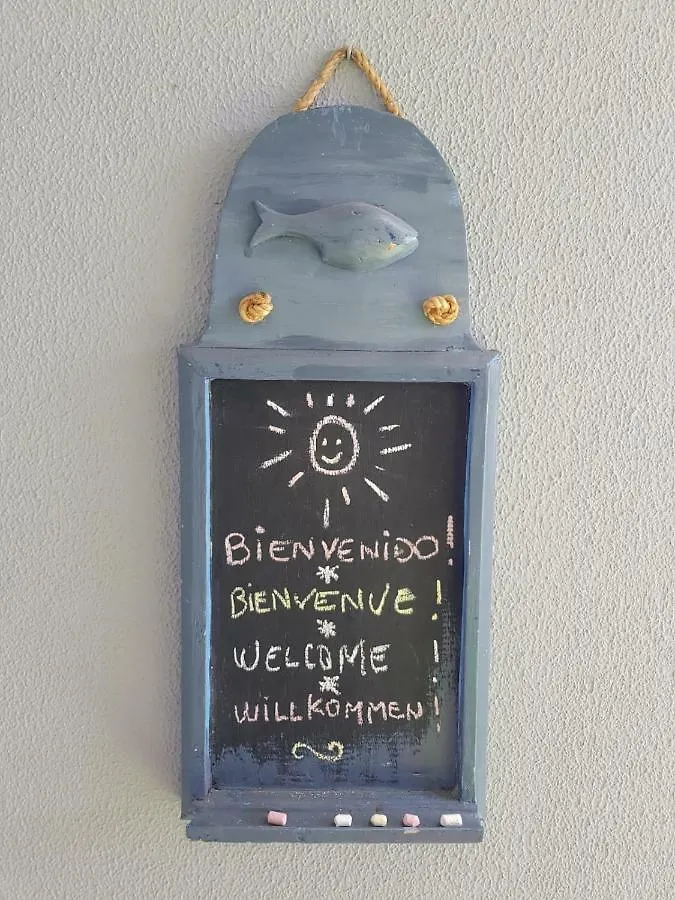 BIENVENIDO!
*
BIENVENUE!
*
WELCOME!
*
WILLKOMMEN!